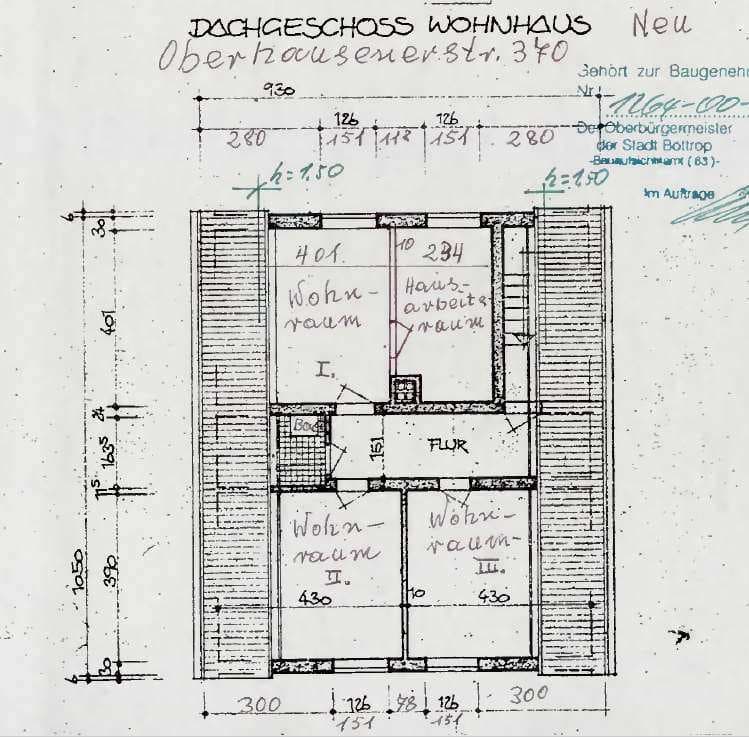 DACHGESCHOSS WOHNHAUS Neu
Oberhausenerstr. 370
Gehört zur Baugeneh
Nr. 1264-00-
Der Oberbürgermeister
der Stadt Bottrop
-Bauaufsichtsamt (63)-
Im Auftrage
930
126 126
280 151 118 151 280
h=1.50 h=1.50
6
30
401
24
163⁵
11⁵
390
30
6
1050
401 10 294
Wohn-
raum
I.
Haus-
arbeits-
raum
Bad
151
FLUR
Wohn-
raum
II.
Wohn-
raum
III.
430 10 430
300 126 78 126 300
151 151